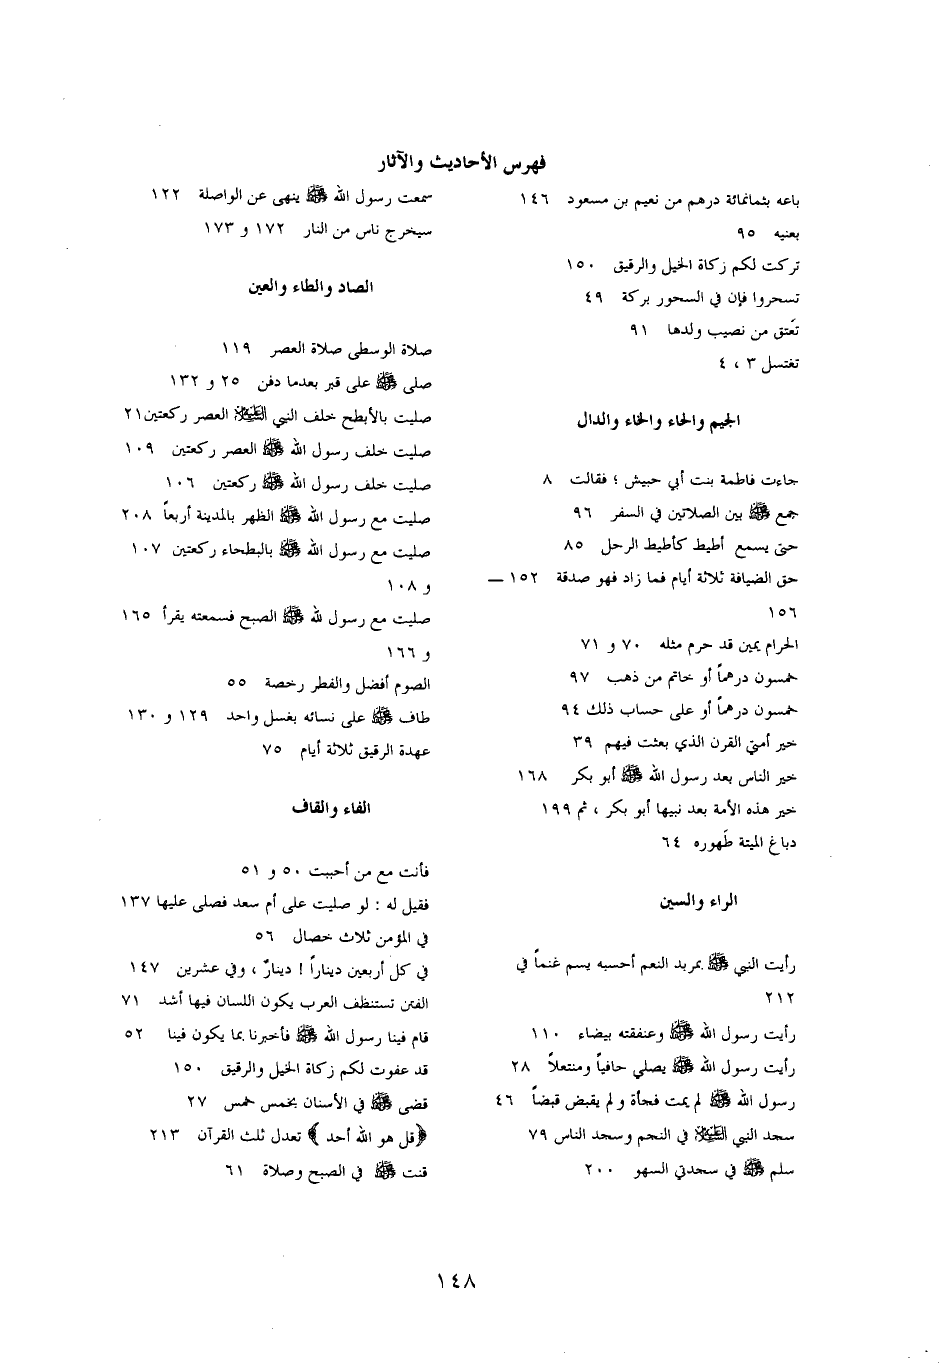 فهرس الأحاديث والآثار
باعه بثمانمائة درهم من نعيم بن مسعود ١٤٦
بعنيه ٩٥
تركت لكم زكاة الخيل والرقيق ١٥٠
تسحروا فإن في السحور بركة ٤٩
تَعتق من نصيب ولدها ٩١
تغتسل ٣ ، ٤
الجيم والحاء والخاء والدال
جاءت فاطمة بنت أبي حبيش ؛ فقالت ٨
جمع ﷺ بين الصلاتين في السفر ٩٦
حتى يسمع أطيط كأطيط الرحل ٨٥
حق الضيافة ثلاثة أيام فما زاد فهو صدقة ١٥٢ ــ
١٥٦
الحرام يمين قد حرم مثله ٧٠ و ٧١
خمسون درهماً أو خاتم من ذهب ٩٧
خمسون درهماً أو على حساب ذلك ٩٤
خير أمتي القرن الذي بعثت فيهم ٣٩
خير الناس بعد رسول الله ﷺ أبو بكر ١٦٨
خير هذه الأمة بعد نبيها أبو بكر ، ثم ١٩٩
دباغ الميتة طَهوره ٦٤
الراء والسين
رأيت النبي ﷺ بمربد النعم أحسبه يسم غنماً في
٢١٢
رأيت رسول الله ﷺ وعنفقته بيضاء ١١٠
رأيت رسول الله ﷺ يصلي حافياً ومنتعلاً ٢٨
رسول الله ﷺ لم يمت فجأة ولم يقبض قبضاً ٤٦
سجد النبي ﷺ في النجم وسجد الناس ٧٩
سلم ﷺ في سجدتي السهو ٢٠٠
سمعت رسول الله ﷺ ينهى عن الواصلة ١٢٢
سيخرج ناس من النار ١٧٢ و ١٧٣
الصاد والطاء والعين
صلاة الوسطى صلاة العصر ١١٩
صلى ﷺ على قبر بعدما دفن ٢٥ و ١٣٢
صليت بالأبطح خلف النبي ﷺ العصر ركعتين ٢١
صليت خلف رسول الله ﷺ العصر ركعتين ١٠٩
صليت خلف رسول الله ﷺ ركعتين ١٠٦
صليت مع رسول الله ﷺ الظهر بالمدينة أربعاً ٢٠٨
صليت مع رسول الله ﷺ بالبطحاء ركعتين ١٠٧
و ١٠٨
صليت مع رسول لله ﷺ الصبح فسمعته يقرأ ١٦٥
و ١٦٦
الصوم أفضل والفطر رخصة ٥٥
طاف ﷺ على نسائه بغسل واحد ١٢٩ و ١٣٠
عهدة الرقيق ثلاثة أيام ٧٥
الفاء والقاف
فأنت مع من أحببت ٥٠ و ٥١
فقيل له : لو صليت على أم سعد فصلى عليها ١٣٧
في المؤمن ثلاث خصال ٥٦
في كل أربعين ديناراً ! دينارٌ ، وفي عشرين ١٤٧
الفتن تستنظف العرب يكون اللسان فيها أشد ٧١
قام فينا رسول الله ﷺ فأخبرنا بما يكون فينا ٥٢
قد عفوت لكم زكاة الخيل والرقيق ١٥٠
قضى ﷺ في الأسنان بخمس خمس ٢٧
﴿قل هو الله أحد﴾ تعدل ثلث القرآن ٢١٣
قنت ﷺ في الصبح وصلاة ٦١
١٤٨